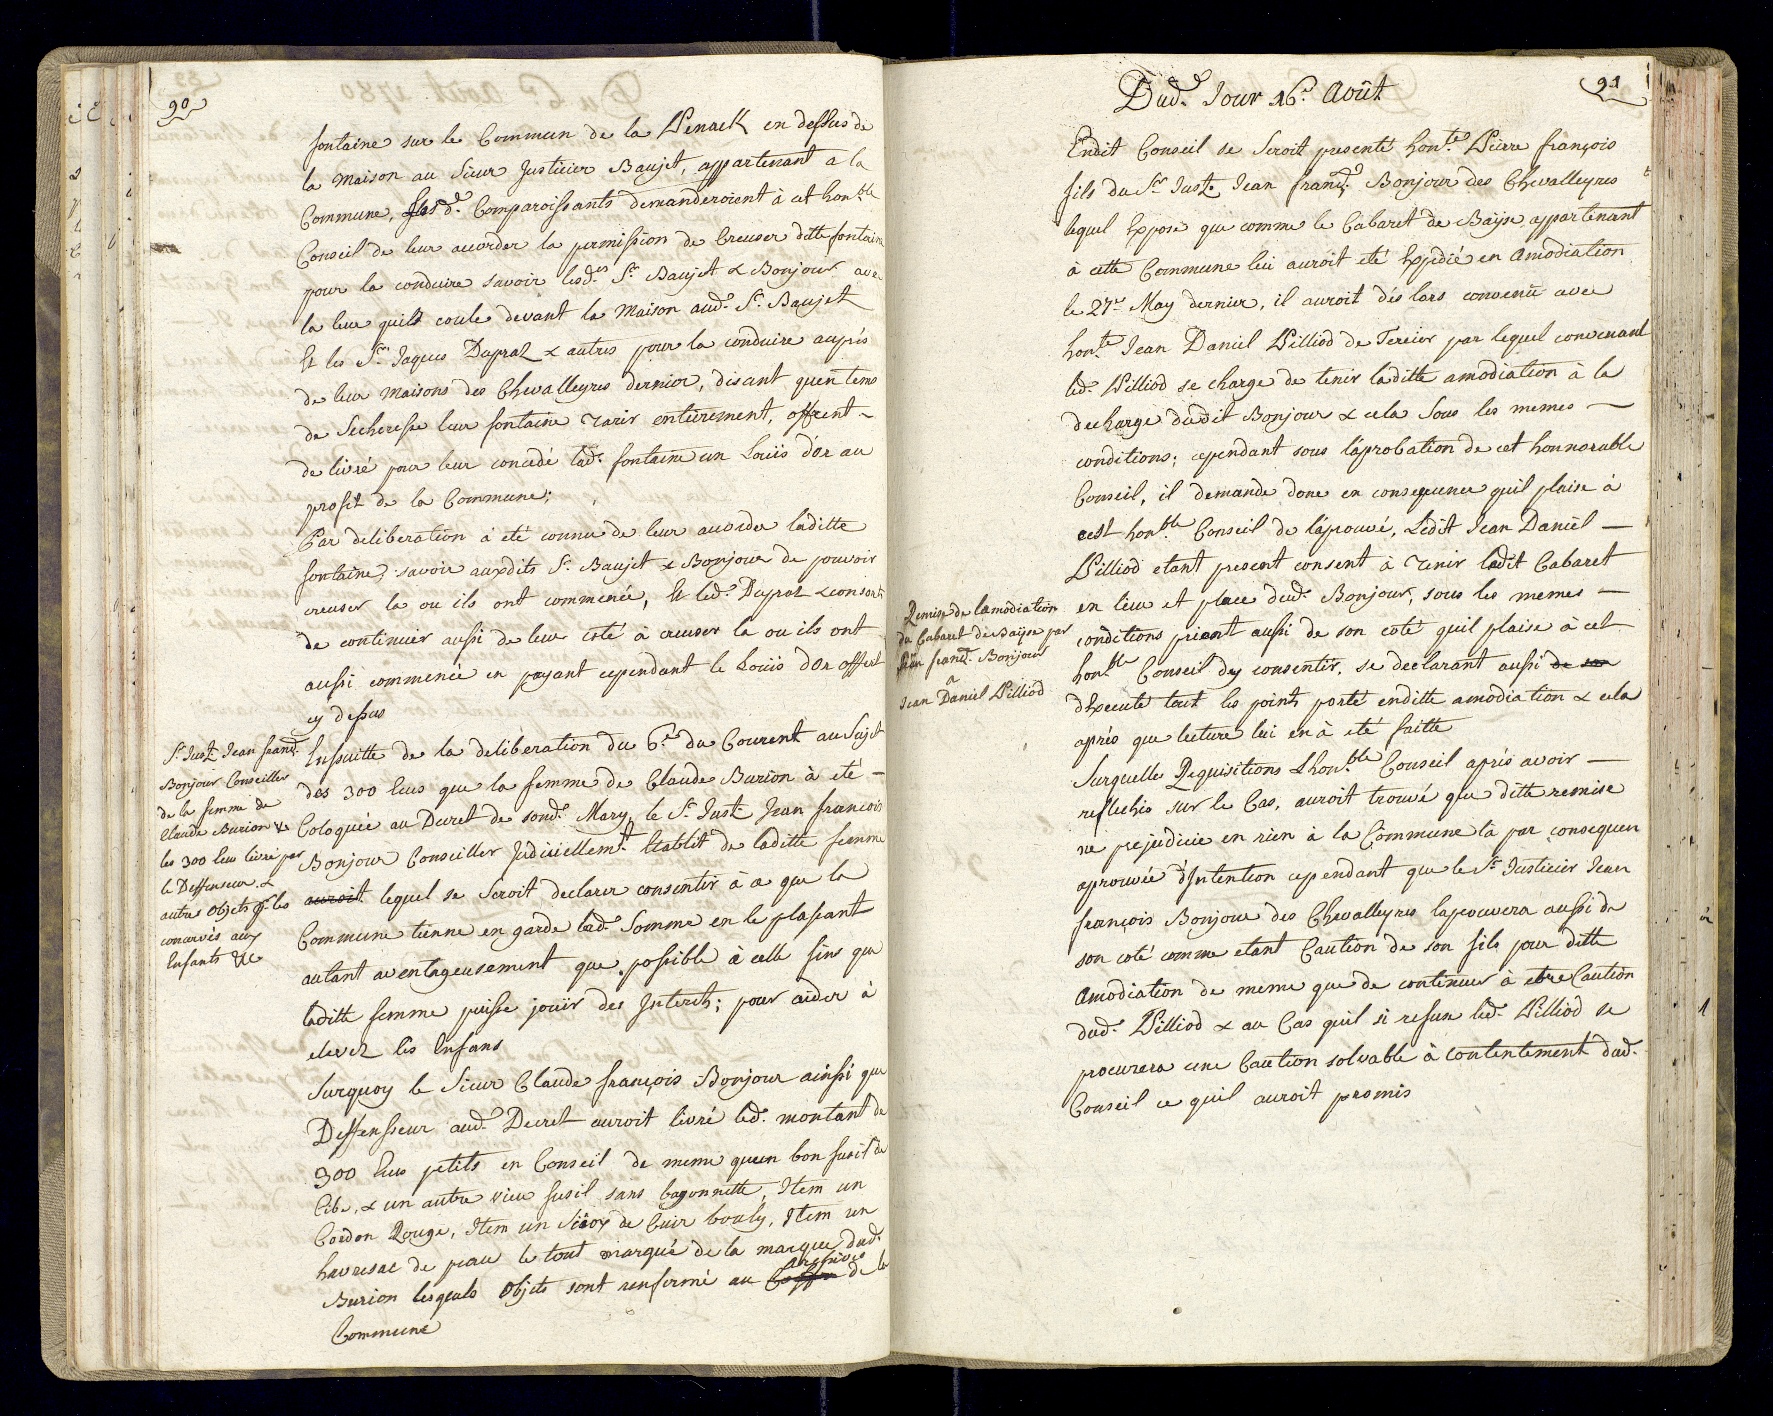 90
fontaine sur le Commun de la Penack en dessus de
la Maison au Sieur Justicier Baujet, appartenant a la
Commune, lesd. Comparoissants demanderoient à cet hon.ble
Conseil de leur accorder la permission de Creuser ditte fontaine
pour la conduire savoir lesd.es S.r Baujet & Bonjour avec
la leur quils coule devant la Maison aud. S.r Baujet
Et les S.rs Jaques Dupraz & autres pour la conduire auprés
de leur Maisons des Chevalleyres dernier, disant quen tems
de Secheresse leur fontaine Tarir entierement, offrent –
de livré pour leur concedé lad. fontaine un Loüis d'or au
profit de la Commune;
Par deliberation à eté connu de leur accorder laditte
fontaine, savoir auxdits S.r Baujet & Bonjour de pouvoir
creuser la ou ils ont commencée, Et led. Dupraz & consorts
de continuer aussi de leur coté à creuser la ou ils ont
aussi commencée en payant cependant le Loüis d'or offert
cy dessus
S.r Just. Jean franç.
Bonjour Conseiller
de la femme de
Claude Burion &
les 300 Ecus livré par
le Deffenseur &
autres Objets q. les
concerves aux
Enfants &c
Ensuitte de la deliberation du 6.e du Courent au Sujet
des 300 Ecus que la femme de Claude Burion à eté –
Coloquée au Decret de sond. Mary, le S.r Just. Jean francois
Bonjour Conseiller Judiciellem.t Etablit de laditte femme
auroit lequel se Seroit declarer consentir à ce que la
Commune tienne en garde lad. Somme en le plassant
autant aventageusement que possible à celle fins que
laditte femme puisse joüir des Interets; pour aider à
elevez les Enfans
Surquoy le Sieur Claude françois Bonjour ainssi que
Deffensseur aud. Decret auroit livré led. montant de
300 Ecus petits en Conseil de meme queen bon fusil de
Cibe, & un autre vieu fusil sans bagonnette, Item un
Cordon Rouge, Item un de Cuir bouly, Item un
havresac de peau le tout marqué de la marque dud.
Burion lesquels Objets sont renfermé au Coffre archives de la
Commune
91
Dud. Jour 16.e Août
Endit Conseil se Seroit presenté hon.te Pierre françois
fils du S.r Just. Jean franç. Bonjour des Chevalleyres
lequel Expose que comme le Cabaret de Baÿse appartenant
à cette Commune lui auroit eté Expedié en Amodiation
le 27.e May dernier, il auroit dés lors convenü avec
hon.te Jean Daniel Pilliod de Tercier par lequel convenant
led. Pilliod se charge de tenir laditte amodiation à la
decharge dudit Bonjour & cela Sous les memes –
conditions; cependant sous l'aprobation de cet honnorable
Conseil, il demande donc en consequence quil plaise à
cest hon.ble Conseil de l'áprouvé, Ledit Jean Daniel –
Pilliod etant present consent à Tenir ladit Cabaret
en lieu et place dud. Bonjour, sous les memes –
conditions priant aussi de son coté quil plaise à cet
hon.ble Conseil dy consentir, se declarant aussi de son
d'Executé tout les points porté enditte amodiation & cela
aprés que lecture lui en à eté faitte
Remise de lamodiation
du Cabaret de Baÿse par
franç. Bonjour
a
Jean Daniel Pilliod
Surquelles Requisitions Lhon.ble Conseil aprés avoir –
reflechis sur le Cas, auroit trouvé que ditte remise
ne prejudicie en rien à la Commune la par consequen
aprouvée d'Intention cependant que le S.r Justicier Jean
françois Bonjour des Chevalleyres laprouvera aussi de
son coté comme etant Caution de son fils pour ditte
Amodiation de meme que de continuer à etre Caution
dud. Pilliod & au Cas quil si refuse led. Pilliod se
procurera une Caution solvable à contentement dud.
Conseil ce quil auroit promis